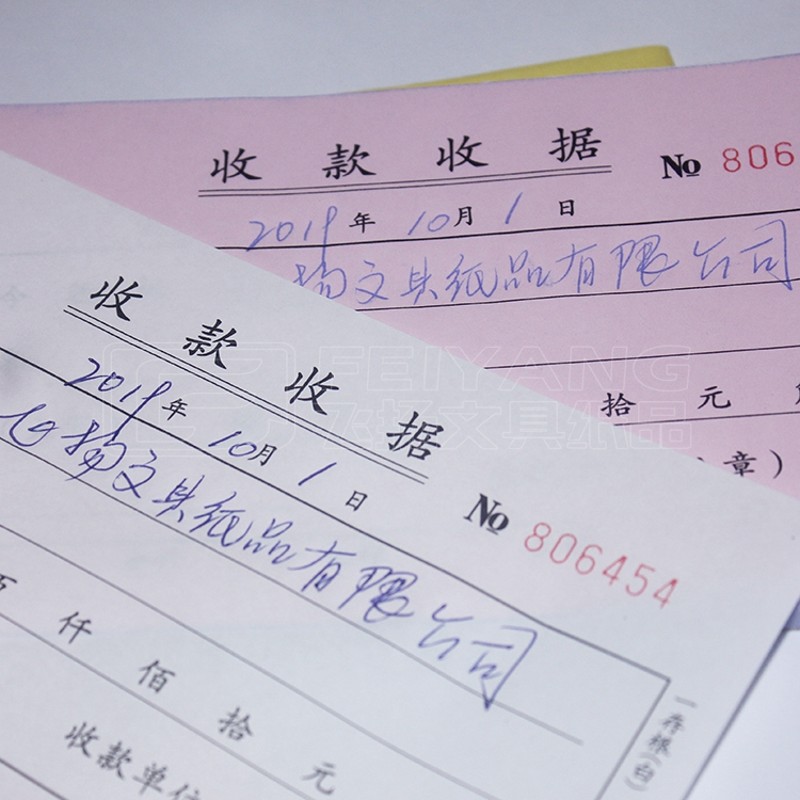 收款收据 № 806
2019年10月1日
扬文具纸品有限公司
拾 元
章）
收款收据
2019年10月1日 № 806454
飞扬文具纸品有限公司
仟 佰 拾 元
收款单位
一存根(白)
FEIYANG
飞扬文具纸品